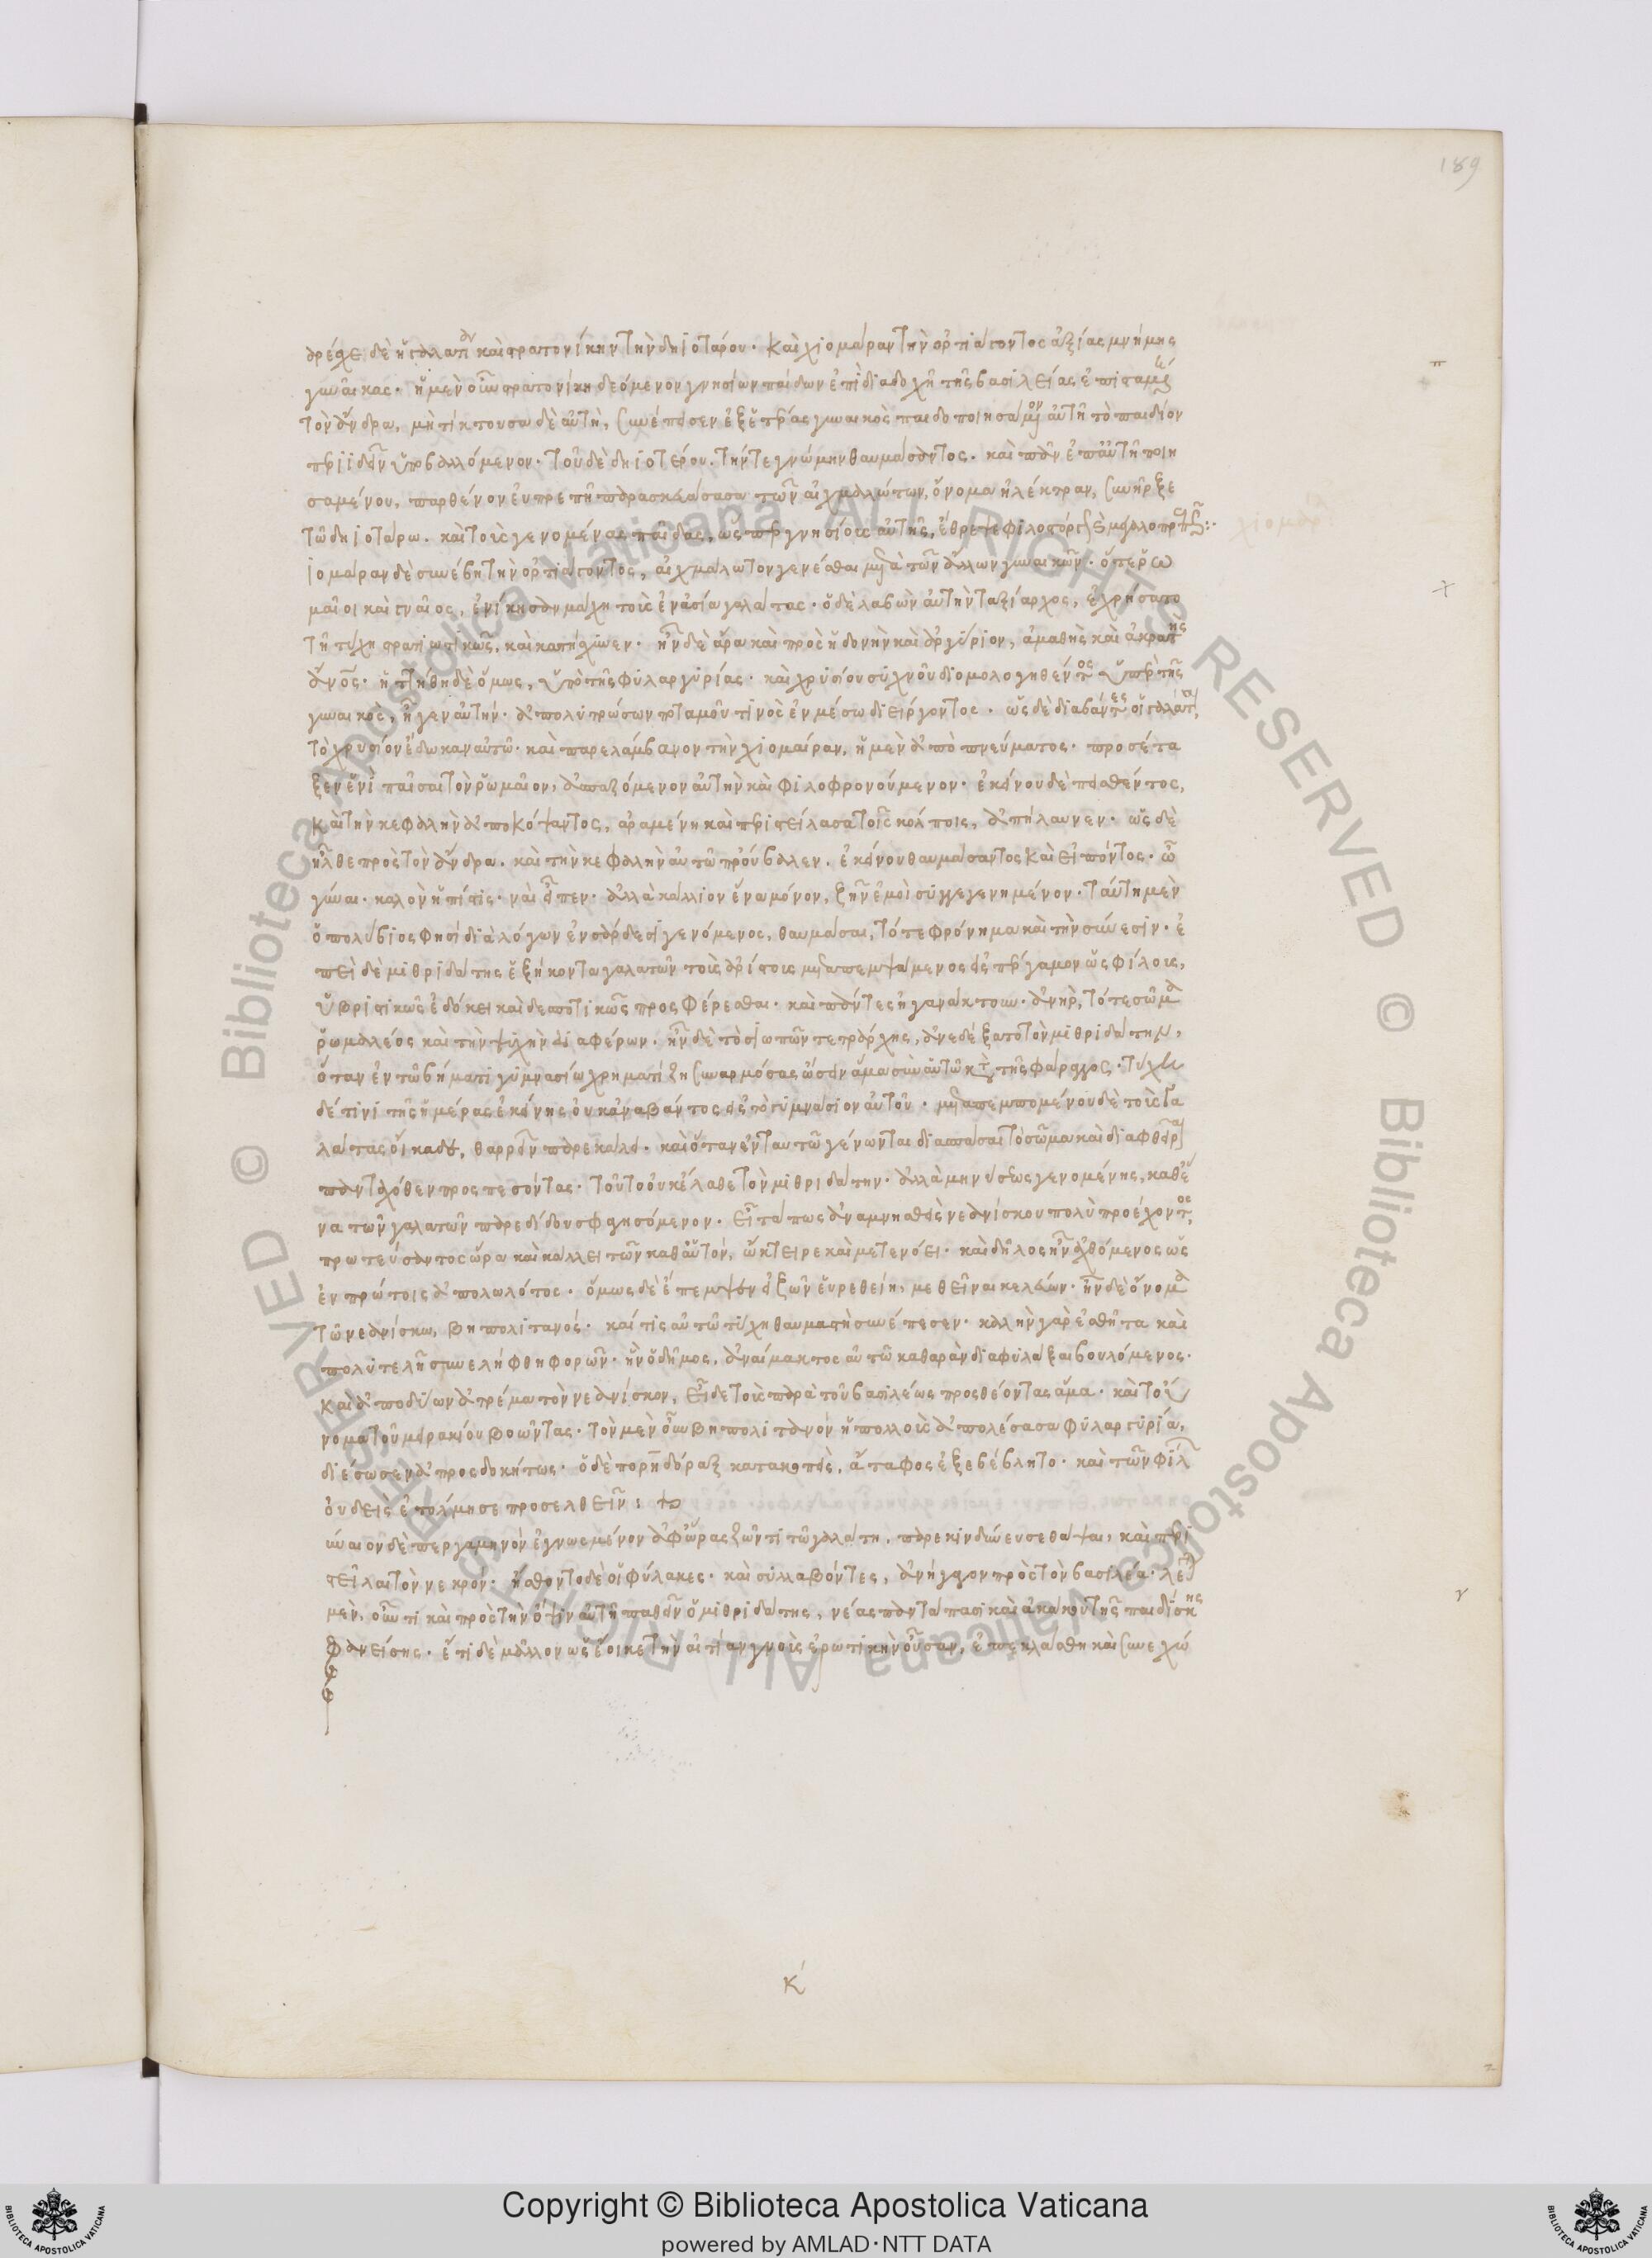 189
αρέχει δὲ ἡ γαλατία καὶ στρατονίκην τὴν δηιοτάρου. καὶ χιομάραν τὴν ὀρτιάγοντος ἀξίας μνήμης
γυναῖκας. ἡ μὲν οὖν στρατονίκη δεόμενον γνησίων παίδων ἐπὶ διαδοχῇ τῆς βασιλείας ἐπισταμένη
τὸν ἄνδρα, μὴ τίκτουσα δὲ αὐτὴ, συνέπεισεν ἐξ ἑτέρας γυναικὸς παιδοποιησάμενον αὐτῇ τὸ παιδίον
περιιδεῖν ὑποβαλλόμενον. τοῦ δὲ δηιοτέρου. τήν τε γνώμην θαυμάσαντος. καὶ πᾶν ἐπ' αὐτῇ ποιη
σαμένου, παρθένον εὐπρεπῆ παρασκευάσασα τῶν αἰχμαλώτων, ὄνομα ἠλέκτραν, συνῆρξε
τῷ δηιοτάρω. καὶ τοὺς γενομένας παῖδας, ὥσπερ γνησίους αὐτῆς, ἔθρεψε φιλοστόργως καὶ μεγαλοπρεπῶς:
ιομάραν δὲ συνέβη τὴν ὀρτιάγοντος, αἰχμάλωτον γενέσθαι μετὰ τῶν ἄλλων γυναικῶν. ὅτε ῥω
μαῖοι καὶ γναῖος, ἐνίκησαν μάχη τοὺς ἐν ἀσία γαλάτας. ὁ δὲ λαβὼν αὐτὴν ταξίαρχος, ἐχρήσατο
τῇ τύχη στρατιωτικῶς, καὶ κατήσχυνεν. ἦν δὲ ἄρα καὶ πρὸς ἡδονὴν καὶ ἀργύριον, ἀμαθὴς καὶ ἀκρατὴς
ἄνθρωπος. ἡττήθη δὲ ὅμως, ὑπὸ τῆς φιλαργυρίας. καὶ χρυσίου συχνοῦ διομολογηθέντος ὑπὲρ τῆς
γυναικὸς, ἦγεν αὐτήν. ἀπολυτρώσων ποταμοῦ τινὸς ἐν μέσω διείργοντος. ὡς δὲ διαβάντες οἱ γαλάται,
τὸ χρυσίον ἔδωκαν αὐτῶ. καὶ παρελάμβανον τὴν χιομαίραν, ἡ μὲν ἀπὸ πνεύματος. προσέτα
ξεν ἑνὶ παῖσαι τὸν ῥωμαῖον, ἀσπαζόμενον αὐτὴν καὶ φιλοφρονούμενον. ἐκείνου δὲ πεισθέντος,
καὶ τὴν κεφαλὴν ἀποκόψαντος, ἀραμένη καὶ περιστείλασα τοῖς κόλποις, ἀπήλαυνεν. ὡς δὲ
ἦλθε πρὸς τὸν ἄνδρα. καὶ τὴν κεφαλὴν αὐτῶ προύβαλεν. ἐκείνου θαυμάσαντος καὶ εἰπόντος. ὦ
γύναι. καλὸν ἡ πίστις. ναὶ εἶπεν. ἀλλὰ κάλλιον ἕνα μόνον, ζῆν ἐμοὶ συγγεγενημένον. ταύτη μὲν
ὁ πολύβιος φησὶ διὰ λόγων ἐν σάρδεσι γενόμενος, θαυμάσαι, τό τε φρόνημα καὶ τὴν σύνεσιν. ἐ
πεὶ δὲ μιθριδάτης ἑξήκοντα γαλατῶν τοὺς ἀρίστους μεταπεμψάμενος εἰς πέργαμον ὡς φίλους,
ὑβριστικῶς ἐδόκει καὶ δεσποτικῶς προσφέρεσθαι. καὶ πάντες ἠγανάκτουν. ἀνὴρ, τό τε σῶμα
ῥωμαλέος καὶ τὴν ψυχὴν διαφέρων. ἦν δὲ τοσιωπῶν τετράρχης, ἀνεδέξατο τὸν μιθριδάτην,
ὅταν ἐν τῶ βήματι γυμνασίω χρηματίζη συναρμόσας ὤσειν ἅμα σὺν αὐτῶ κατὰ τῆς φάραγγος. τύχη
δέ τινι τῆς ἡμέρας ἐκείνης οὐκ ἀναβάντος εἰς τὸ γυμνάσιον αὐτοῦ. μεταπεμπομένου δὲ τοὺς γα
λάτας οἴκαδε, θαρρεῖν παρεκάλει. καὶ ὅταν ἐν ταυτῶ γένωνται διασπάσαι τὸ σῶμα καὶ διαφθεῖραι
πανταχόθεν προσπεσόντας. τοῦτο οὐκ ἔλαθε τὸν μιθριδάτην. ἀλλὰ μηνύσεως γενομένης, καθ' ἕ
να τῶν γαλατῶν παρεδίδου σφαγησόμενον. εἶτά πως ἀναμνησθεὶς νεανίσκου πολὺ προέχοντος,
πρωτεύσαντος ὥρα καὶ κάλλει τῶν καθ' αὑτὸν, ὤκτειρε καὶ μετενόει. καὶ δῆλος ἦν ἀχθόμενος ὡς
ἐν πρώτοις ἀπολωλότος. ὅμως δὲ ἔπεμψεν εἰ ζῶν εὑρεθείη, μεθεῖναι κελεύων. ἦν δὲ ὄνομα
τῶ νεανίσκω, βηπολιτανός. καί τις αὐτῶ τύχη θαυμαστὴ συνέπεσεν. καλὴν γὰρ ἐσθῆτα καὶ
πολυτελῆ συνελήφθη φορῶν. ἣν ὁ δῆμος, ἀναίμακτος αὐτῶ καθαρὰν διαφυλάξαι βουλόμενος.
καὶ ἀποδύων ἀτρέμα τὸν νεανίσκον, εἶδε τοὺς παρὰ τοῦ βασιλέως προσθέοντας ἅμα. καὶ τοὔ
νομα τοῦ μειρακίου βοῶντας. τὸν μὲν οὖν βηπολιτανὸν ἡ πολλοὺς ἀπολέσασα φιλαργυρία,
διέσωσεν ἀπροσδοκήτως. ὁ δὲ πορηδόραξ κατακοπεὶς, ἄταφος ἐξεβέβλητο. καὶ τῶν φίλων
οὐδεὶς ἐτόλμησε προσελθεῖν:
ύναιον δὲ περγαμηνὸν ἐγνωσμένον ἀφ' ὥρας ζῶντι τῶ γαλάτη, παρεκινδύνευσε θάψαι, καὶ περι
στεῖλαι τὸν νεκρόν. ἤσθοντο δὲ οἱ φύλακες. καὶ συλλαβόντες, ἀνήγαγον πρὸς τὸν βασιλέα. λέγεται
μὲν, οὖν τι καὶ πρὸς τὴν ὄψιν αὐτῆ παθεῖν ὁ μιθριδάτης, νέας παντάπασι καὶ ἀκάκου τῆς παιδίσκης
φανείσης. ἔτι δὲ μᾶλλον ὡς ἔοικε τὴν αἰτίαν γνοὺς ἐρωτικὴν οὖσαν, ἐπεκλάσθη καὶ συνεχώ
π
χ
γ
κ
Copyright © Biblioteca Apostolica Vaticana
powered by AMLAD·NTT DATA